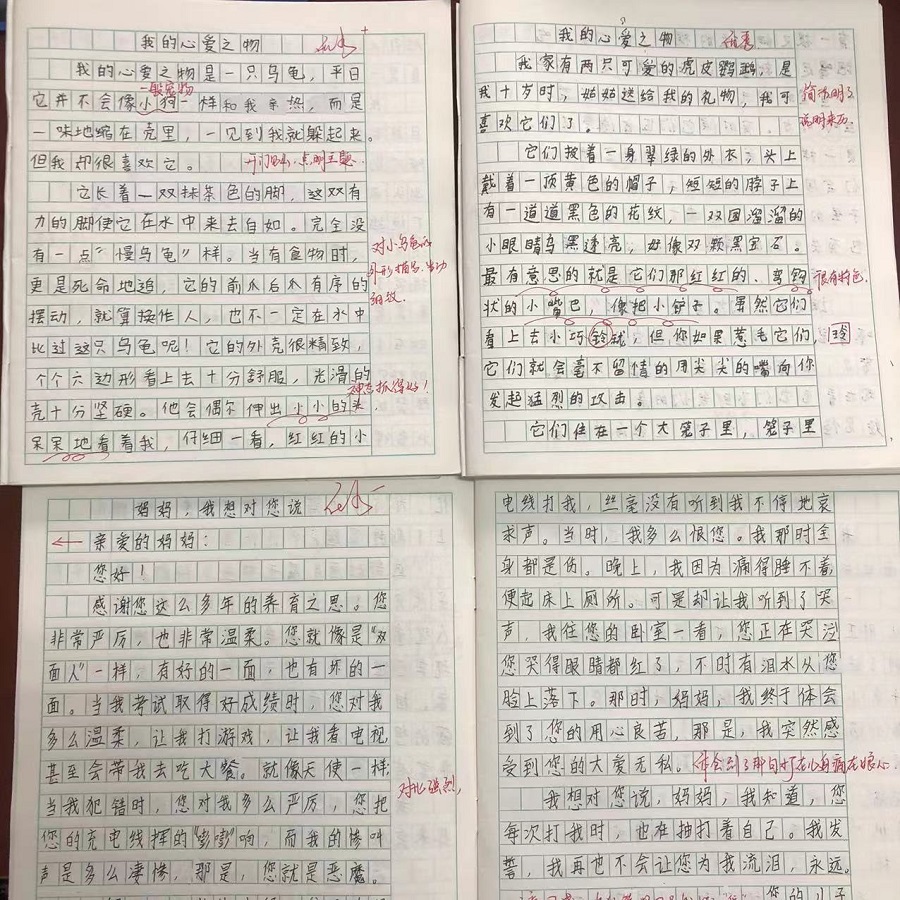 我的心爱之物
我的心爱之物是一只乌龟，平日
一般宠物
它并不会像小狗一样和我亲热，而是
一味地缩在壳里，一见到我就躲起来。
但我却很喜欢它。
开门见山，点明主题。
它长着一双抹茶色的脚，这双有
力的脚使它在水中来去自如。完全没
有一点“慢乌龟”样。当有食物时，
更是死命地追，它的前爪后爪有序的
摆动，就算换作人，也不一定在水中
比过这只乌龟呢！它的外壳很精致，
个个六边形看上去十分舒服，光滑的
壳十分坚硬。他会偶尔伸出小小的头
呆呆地看着我，仔细一看，红红的小
对小乌龟的
外形描写，生动
细致。
神态抓得好！
我的心爱之物
优秀
我家有两只可爱的虎皮鹦鹉，是
我十岁时，姑姑送给我的礼物，我可
喜欢它们了。
简洁明了
说明来历。
它们披着一身翠绿的外衣；头上
戴着一顶黄色的帽子；短短的脖子上
有一道道黑色的花纹，一双圆溜溜的
小眼睛乌黑透亮，好像双颗黑宝石。
最有意思的就是它们那红红的、弯钩
状的小嘴巴，像把小钳子。虽然它们
看上去小巧铃珑，但你如果惹毛它们，
玲
它们就会毫不留情的用尖尖的嘴向你
发起猛烈的攻击。
很有特色。
它们住在一个大笼子里，笼子里
妈妈，我想对您说
亲爱的妈妈：
您好！
感谢您这么多年的养育之恩。您
非常严厉，也非常温柔。您就像是“双
面人”一样，有好的一面，也有坏的一
面。当我考试取得好成绩时，您对我
多么温柔，让我打游戏，让我看电视
甚至会带我去吃大餐。就像天使一样，
当我犯错时，您对我多么严厉，您把
您的充电线挥的“嘭嘭”响，而我的惨叫
声是多么凄惨，那是，您就是恶魔。
对比强烈，
电线打我，丝毫没有听到我不停地哀
求声。当时，我多么恨您。我那时全
身都是伤。晚上，我因为痛得睡不着
便起床上厕所。可是却让我听到了哭
声，我往您的卧室一看，您正在哭泣
您哭得眼睛都红了，不时有泪水从您
脸上落下。那时，妈妈，我终于体会
到了您的用心良苦，那是，我突然感
受到您的大爱无私。
体会到了那句打在儿身痛在娘心
我想对您说，妈妈，我知道，您
每次打我时，也在抽打着自己。我发
誓，我再也不会让您为我流泪，永远。
您的儿子